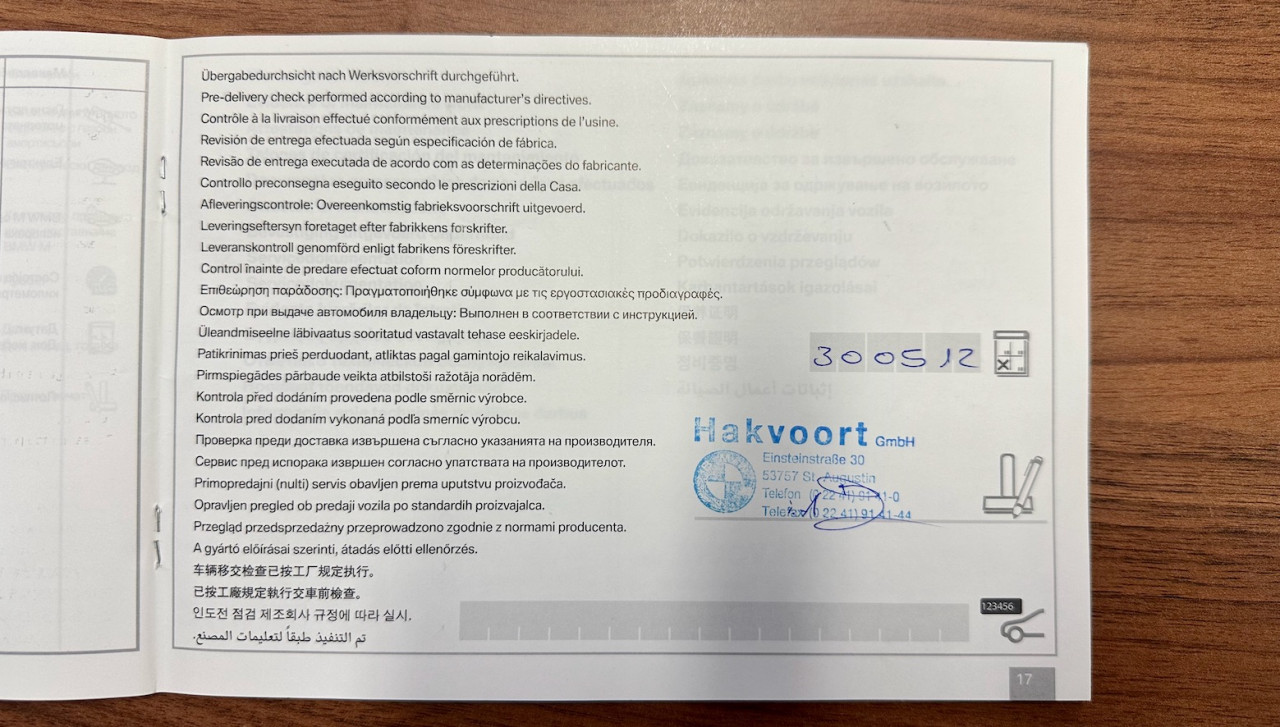 Übergabedurchsicht nach Werksvorschrift durchgeführt.
Pre-delivery check performed according to manufacturer's directives.
Contrôle à la livraison effectué conformément aux prescriptions de l'usine.
Revisión de entrega efectuada según especificación de fábrica.
Revisão de entrega executada de acordo com as determinações do fabricante.
Controllo preconsegna eseguito secondo le prescrizioni della Casa.
Afleveringscontrole: Overeenkomstig fabrieksvoorschrift uitgevoerd.
Leveringseftersyn foretaget efter fabrikkens forskrifter.
Leveranskontroll genomförd enligt fabrikens föreskrifter.
Control înainte de predare efectuat coform normelor producătorului.
Επιθεώρηση παράδοσης: Πραγματοποιήθηκε σύμφωνα με τις εργοστασιακές προδιαγραφές.
Осмотр при выдаче автомобиля владельцу: Выполнен в соответствии с инструкцией.
Üleandmiseelne läbivaatus sooritatud vastavalt tehase eeskirjadele.
Patikrinimas prieš perduodant, atliktas pagal gamintojo reikalavimus.
Pirmspiegādes pārbaude veikta atbilstoši ražotāja norādēm.
Kontrola před dodáním provedena podle směrnic výrobce.
Kontrola pred dodaním vykonaná podľa smerníc výrobcu.
Проверка преди доставка извършена съгласно указанията на производителя.
Сервис пред испорака извршен согласно упатствата на производителот.
Primopredajni (nulti) servis obavljen prema uputstvu proizvođača.
Opravljen pregled ob predaji vozila po standardih proizvajalca.
Przegląd przedsprzedażny przeprowadzono zgodnie z normami producenta.
A gyártó előírásai szerinti, átadás előtti ellenőrzés.
车辆移交检查已按工厂规定执行。
已按工廠規定執行交車前檢查。
인도전 점검 제조회사 규정에 따라 실시.
تم التنفيذ طبقاً لتعليمات المصنع.
300512
Hakvoort GmbH
Einsteinstraße 30
53757 St. Augustin
Telefon (0 22 41) 91 41-0
Telefax (0 22 41) 91 41-44
123456
17